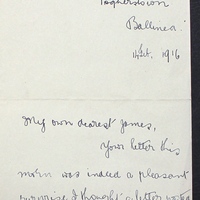 Ballina.
1916
My own dearest James,
Your letter this
morn was indeed a pleasant
surprise I thought a letter